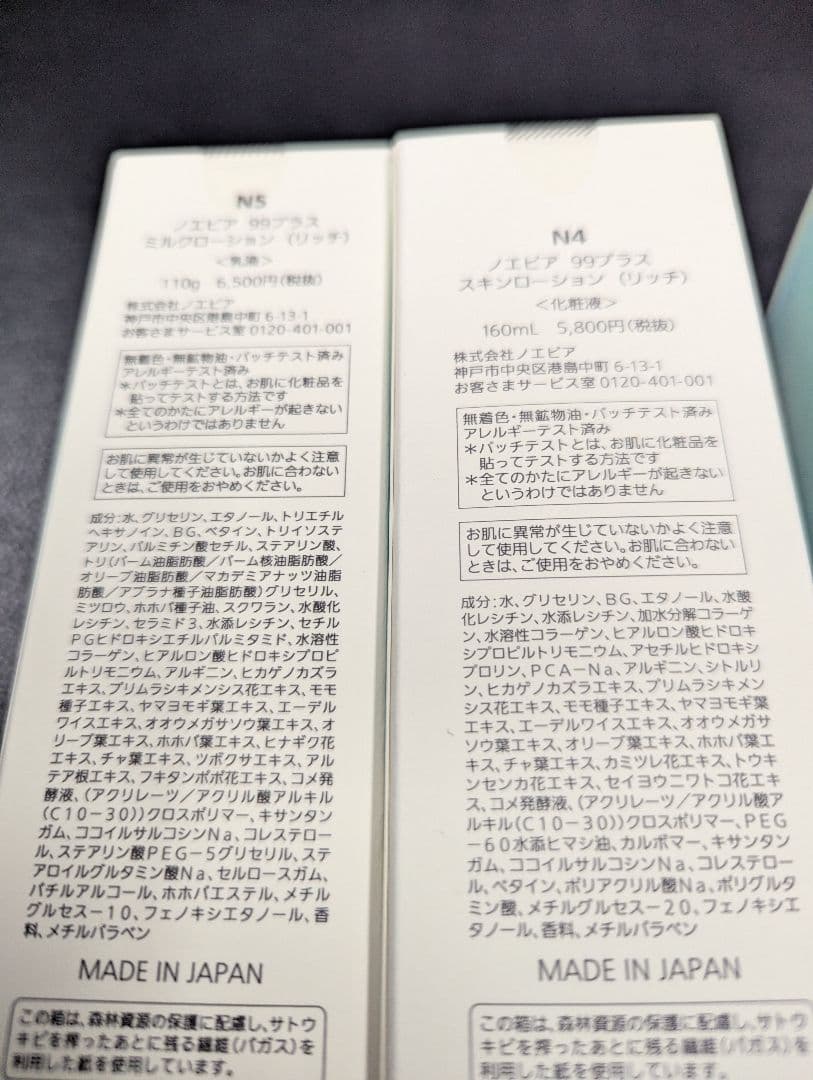 N5
ノエビア 99プラス
ミルクローション (リッチ)
<乳液>
110g 6,500円(税抜)
株式会社ノエビア
神戸市中央区港島中町 6-13-1
お客さまサービス室 0120-401-001
無着色・無鉱物油・パッチテスト済み
アレルギーテスト済み
*パッチテストとは、お肌に化粧品を
貼ってテストする方法です
*全てのかたにアレルギーが起きない
というわけではありません
お肌に異常が生じていないかよく注意
して使用してください。お肌に合わない
ときは、ご使用をおやめください。
成分:水、グリセリン、エタノール、トリエチル
ヘキサノイン、BG、ベタイン、トリイソステ
アリン、パルミチン酸セチル、ステアリン酸、
トリ(パーム油脂肪酸/パーム核油脂肪酸/
オリーブ油脂肪酸/マカデミアナッツ油脂
肪酸/アブラナ種子油脂肪酸)グリセリル、
ミツロウ、ホホバ種子油、スクワラン、水酸化
レシチン、セラミド3、水添レシチン、セチル
PGヒドロキシエチルパルミタミド、水溶性
コラーゲン、ヒアルロン酸ヒドロキシプロピ
ルトリモニウム、アルギニン、ヒカゲノカズラ
エキス、プリムラシキメンシス花エキス、モモ
種子エキス、ヤマヨモギ葉エキス、エーデル
ワイスエキス、オオウメガサソウ葉エキス、オ
リーブ葉エキス、ホホバ葉エキス、ヒナギク花
エキス、チャ葉エキス、ツボクサエキス、アル
テア根エキス、フキタンポポ花エキス、コメ発
酵液、(アクリレーツ/アクリル酸アルキル
(C10-30))クロスポリマー、キサンタン
ガム、ココイルサルコシンNa、コレステロー
ル、ステアリン酸PEG-5グリセリル、ステ
アロイルグルタミン酸Na、セルロースガム、
バチルアルコール、ホホバエステル、メチル
グルセス-10、フェノキシエタノール、香
料、メチルパラベン
MADE IN JAPAN
この箱は、森林資源の保護に配慮し、サトウ
キビを搾ったあとに残る繊維(バガス)を
利用した紙を使用しています。
N4
ノエビア 99プラス
スキンローション (リッチ)
<化粧液>
160mL 5,800円(税抜)
株式会社ノエビア
神戸市中央区港島中町 6-13-1
お客さまサービス室 0120-401-001
無着色・無鉱物油・パッチテスト済み
アレルギーテスト済み
*パッチテストとは、お肌に化粧品を
貼ってテストする方法です
*全てのかたにアレルギーが起きない
というわけではありません
お肌に異常が生じていないかよく注意
して使用してください。お肌に合わない
ときは、ご使用をおやめください。
成分:水、グリセリン、BG、エタノール、水酸
化レシチン、水添レシチン、加水分解コラーゲ
ン、水溶性コラーゲン、ヒアルロン酸ヒドロキ
シプロピルトリモニウム、アセチルヒドロキシ
プロリン、PCA-Na、アルギニン、シトルリ
ン、ヒカゲノカズラエキス、プリムラシキメン
シス花エキス、モモ種子エキス、ヤマヨモギ葉
エキス、エーデルワイスエキス、オオウメガサ
ソウ葉エキス、オリーブ葉エキス、ホホバ葉エ
キス、チャ葉エキス、カミツレ花エキス、トウキ
ンセンカ花エキス、セイヨウニワトコ花エキ
ス、コメ発酵液、(アクリレーツ/アクリル酸ア
ルキル(C10-30))クロスポリマー、PEG
-60水添ヒマシ油、カルボマー、キサンタン
ガム、ココイルサルコシンNa、コレステロー
ル、ベタイン、ポリアクリル酸Na、ポリグルタ
ミン酸、メチルグルセス-20、フェノキシエ
タノール、香料、メチルパラベン
MADE IN JAPAN
この箱は、森林資源の保護に配慮し、サトウ
キビを搾ったあとに残る繊維(バガス)を
利用した紙を使用しています。